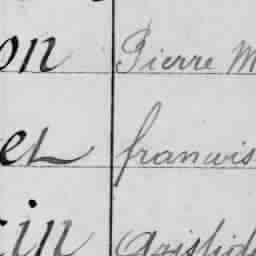 on Pierre M
et francois
in Aristid